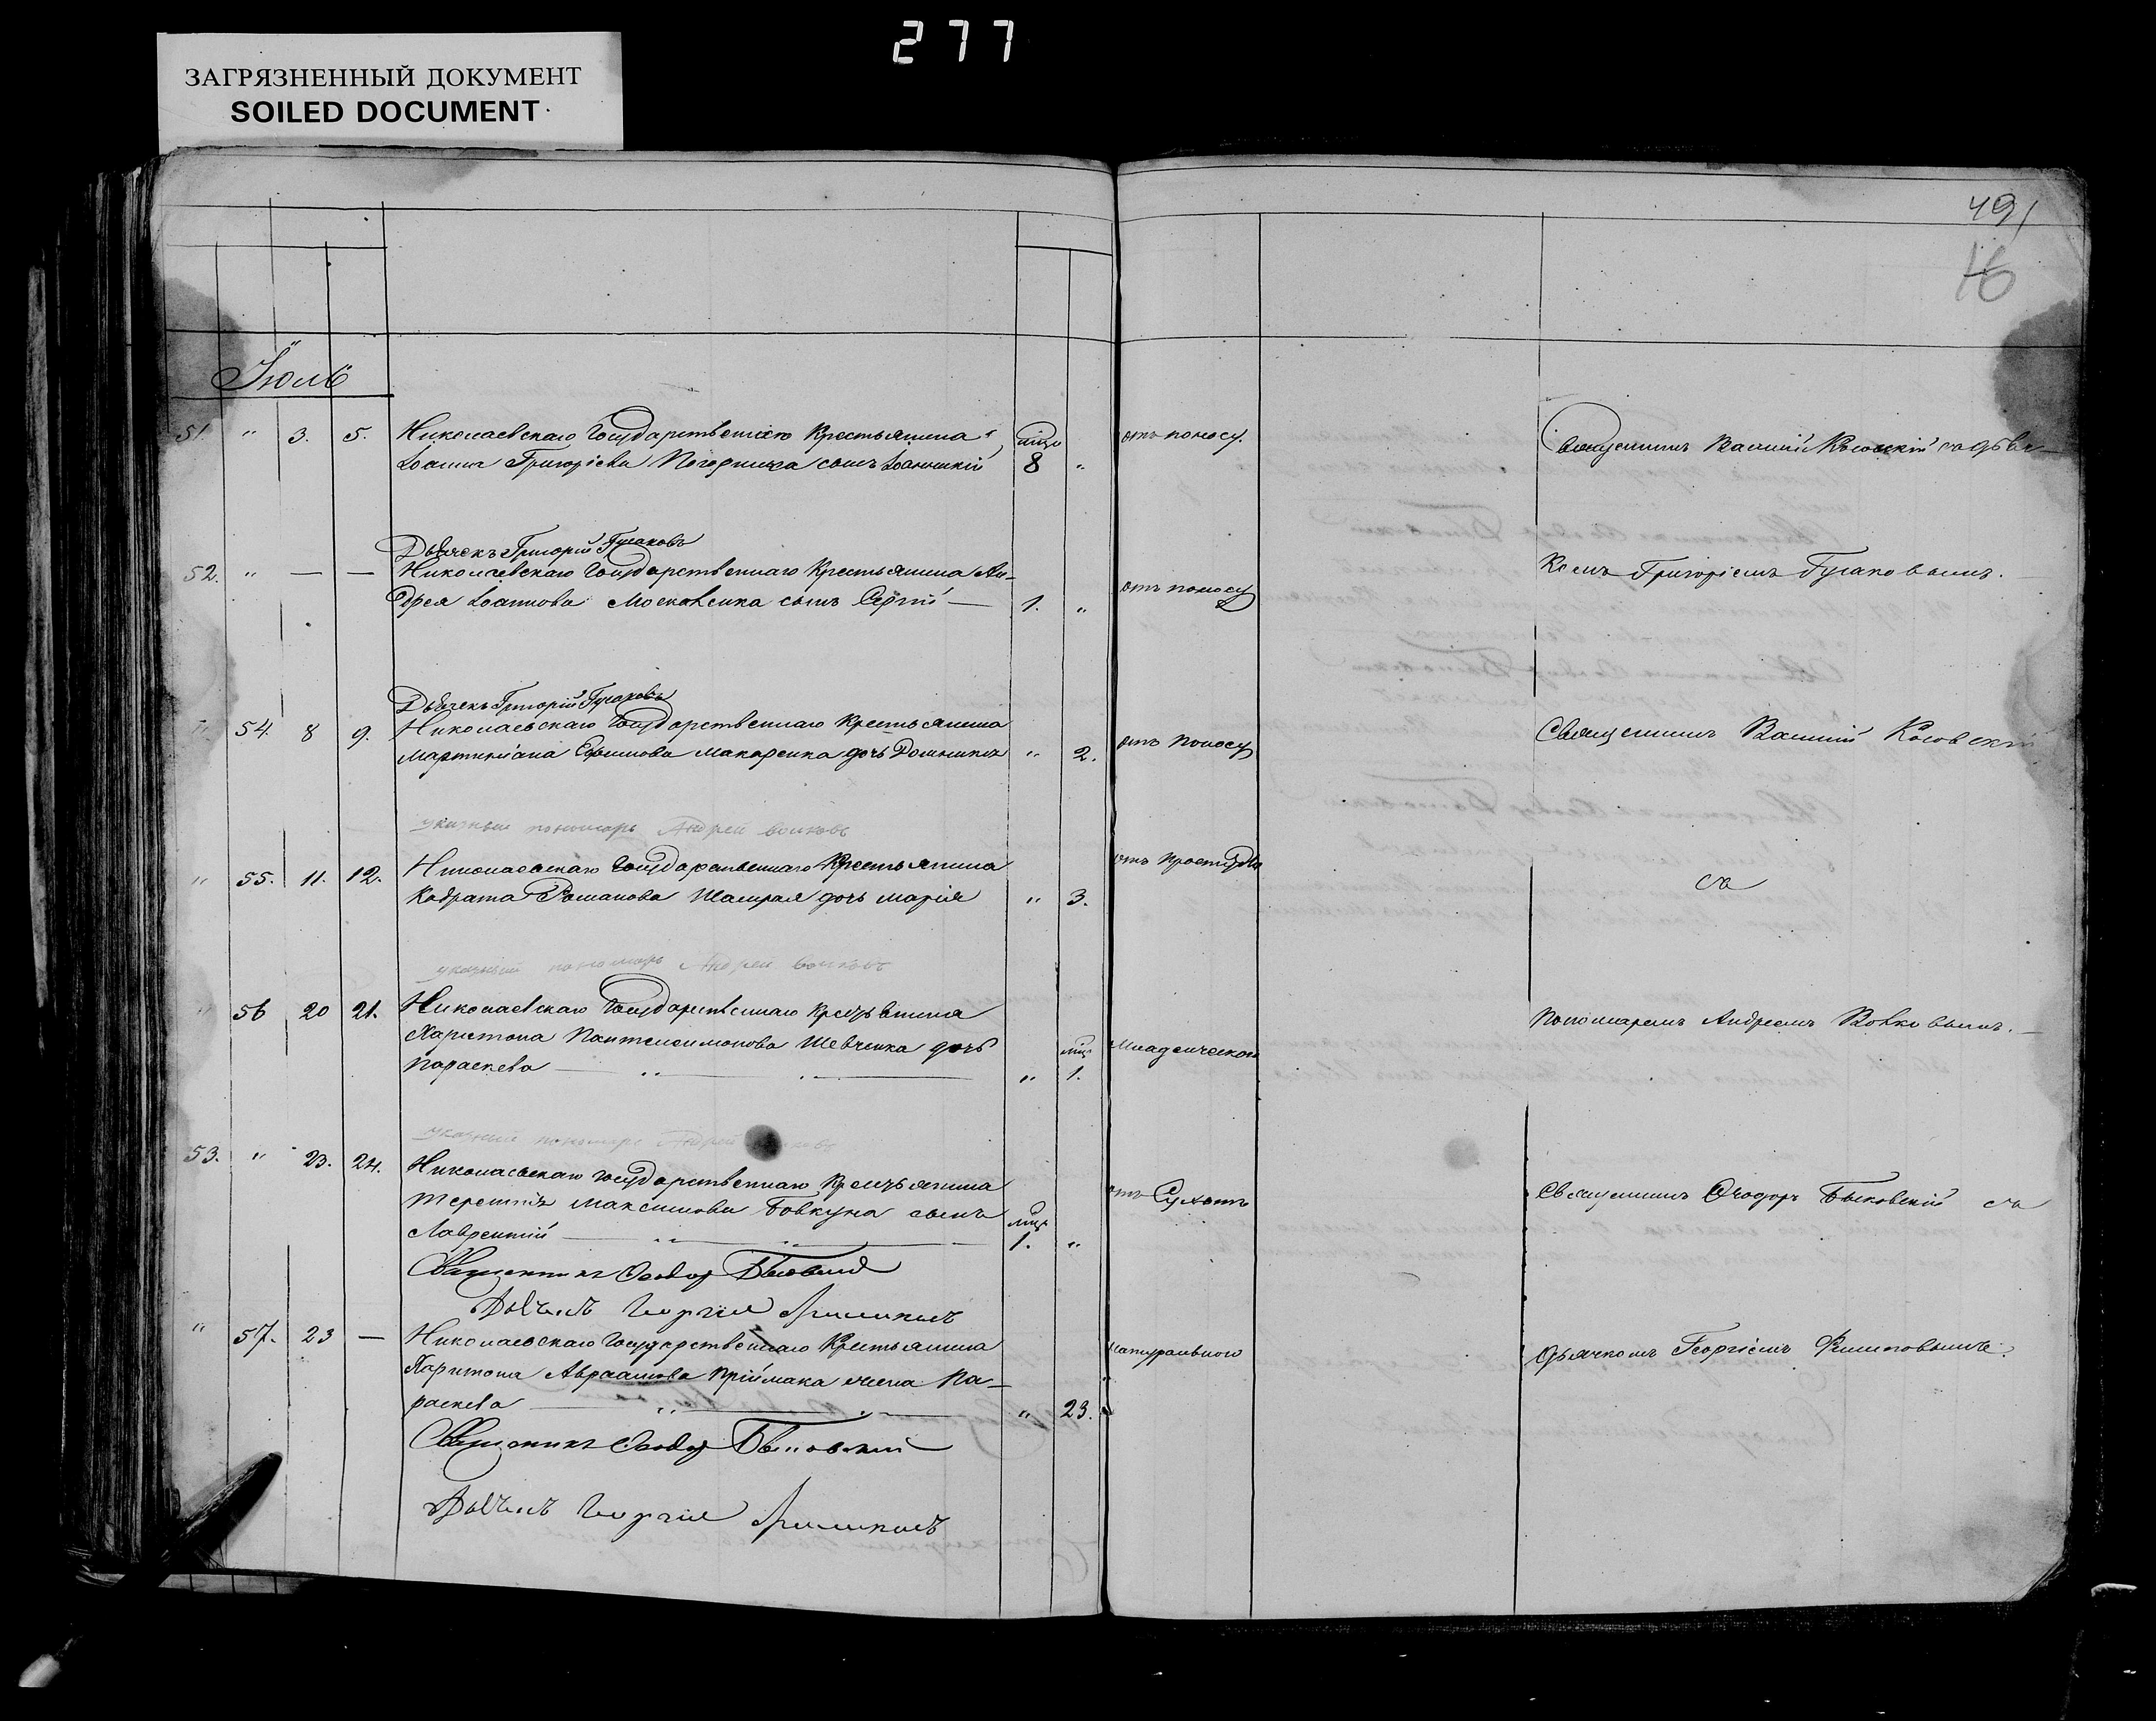 277
ЗАГРЯЗНЕННЫЙ ДОКУМЕНТ
SOILED DOCUMENT
491
16
Июль
51. " 3. 5. Николаевскаго Государственнаго Крестьянина
Іоанна Григоріева сынъ Іоанникій 8 "
отъ поносу.
Священникъ Василій Косовскій съ дьяч
Дьячекъ Григорій Гусаковъ
52. " — — Николаевскаго Государственнаго Крестьянина Ан-
дрея Іоаннова Московенка сынъ Сергій — 1. "
отъ поносу
комъ Григоріемъ Гусаковымъ.
Дьячекъ Григорій Гусаковъ
" 54. 8 9. Николаевскаго Государственнаго Крестьянина
Мартиніана Ефимова Макаренка дочь Домникія " 2.
отъ поносу
Священникъ Василій Косовскій
указный пономарь Андрей Волковъ
" 55. 11. 12. Николаевскаго Государственнаго Крестьянина
Кодрата Романова Шамрая дочь Марія " 3.
отъ простуды
съ
указный пономарь Андрей Волковъ
" 56 20 21. Николаевскаго Государственнаго Крестьянина
Харитона Пантелеимонова Шевченка дочь
Параскева — " — " — " 1.
младенческой
Пономаремъ Андреемъ Вовковымъ. —
указный пономарь Андрей
53. " 23. 24. Николаевскаго Государственнаго Крестьянина
Терентія Максимова Бовкуна сынъ
Лаврентій — " — " — 1. "
отъ Сухотъ
Священникъ Ѳеодоръ Быковскій съ
Священникъ Ѳеодоръ Быковскій
Дьячекъ Георгій
" 57. 23 — Николаевскаго Государственнаго Крестьянина
Харитона Авраамова Приймака жена Па-
раскева — " — " — " 23.
натуральною
дьячкомъ Георгіемъ Филиповымъ.
Священникъ Ѳеодоръ Быковскій
Дьячекъ Георгій